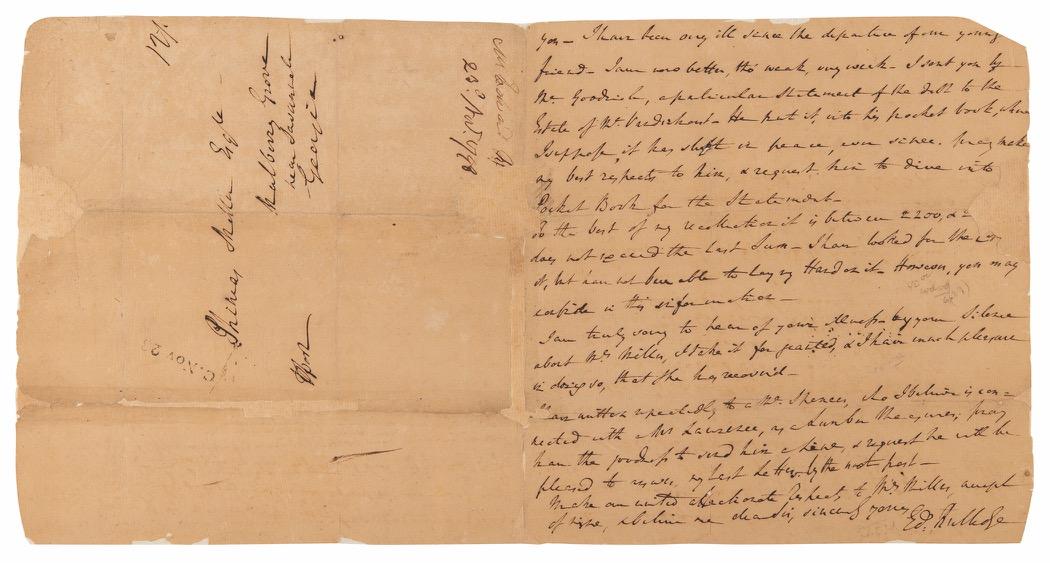 12½
Phineas Miller Esqr
Mulberry Grove
near Savannah
Georgia
Post
C. Nov 23
Mr Edward
23d Novr 1798
you – I have been very ill since the departure of our young
friend – I am now better, tho' weak, very weak – I sent you by
Mr Goodrich, a particular Statement of the debt to the
Estate of Mr – He put it, into his pocket book, where
I suppose, it has slept in peace, ever since. pray make
my best respects to him, & request him to dive into
Pocket Book for the Statement –
To the best of my recollection it is between £200, &
does not exceed the last Sum – I have looked for the
it, but have not been able to lay my Hand on it – However, you may
confide in this information –
I am truly sorry to hear of your illness – by your Silence
about Mrs Miller, I take it for granted, & I have much pleasure
in doing so, that she has recovered –
I have written repeatedly to a Mr Spencer, who I believe is con=
nected with a Mr Lawrence, as a Lumber Measurer; pray
have the goodness to send him a line, & request he will be
pleased to answer my last Letter by the next post –
Make our united affectionate Respects, to Mrs Miller, accept
of mine, & believe me dear Sir, sincerely yours
Ed: Rutledge